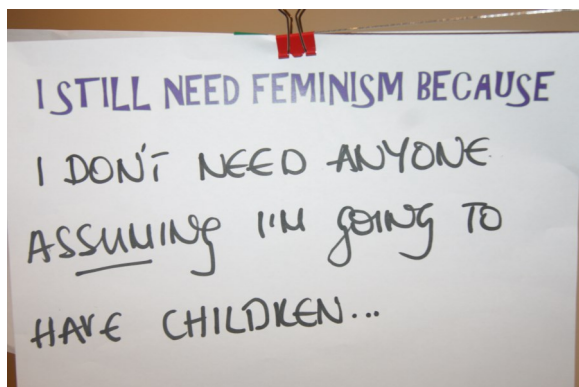 I STILL NEED FEMINISM BECAUSE
I DON'T NEED ANYONE
ASSUMING I'M GOING TO
HAVE CHILDREN...